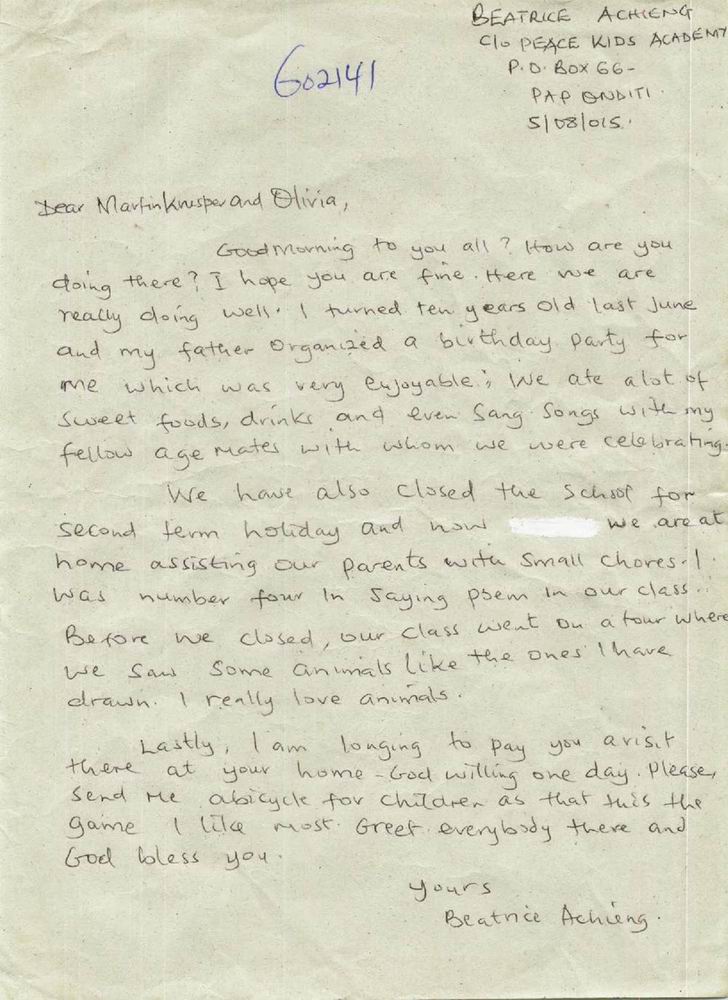 BEATRICE ACHIENG
C/o PEACE KIDS ACADEMY
P.O. BOX 66-
PAP ONDITI.
5/08/015.
G02141
Dear Martin Knusper and Olivia,
Good Morning to you all? How are you
doing there? I hope you are fine. Here we are
really doing well. I turned ten years old last June
and my father organized a birthday party for
me which was very enjoyable; We ate alot of
sweet foods, drinks and even Sang Songs with my
fellow age mates with whom we were celebrating.
We have also closed the school for
second term holiday and now we are at
home assisting our parents with small chores. I
was number four In saying poem in our class.
Before we closed, our class went on a tour where
we saw some animals like the ones I have
drawn. I really love animals.
Lastly, I am longing to pay you a visit
there at your home - God willing one day. Please,
send me abicycle for children as that is the
game I like most. Greet everybody there and
God bless you.
Yours
Beatrice Achieng.